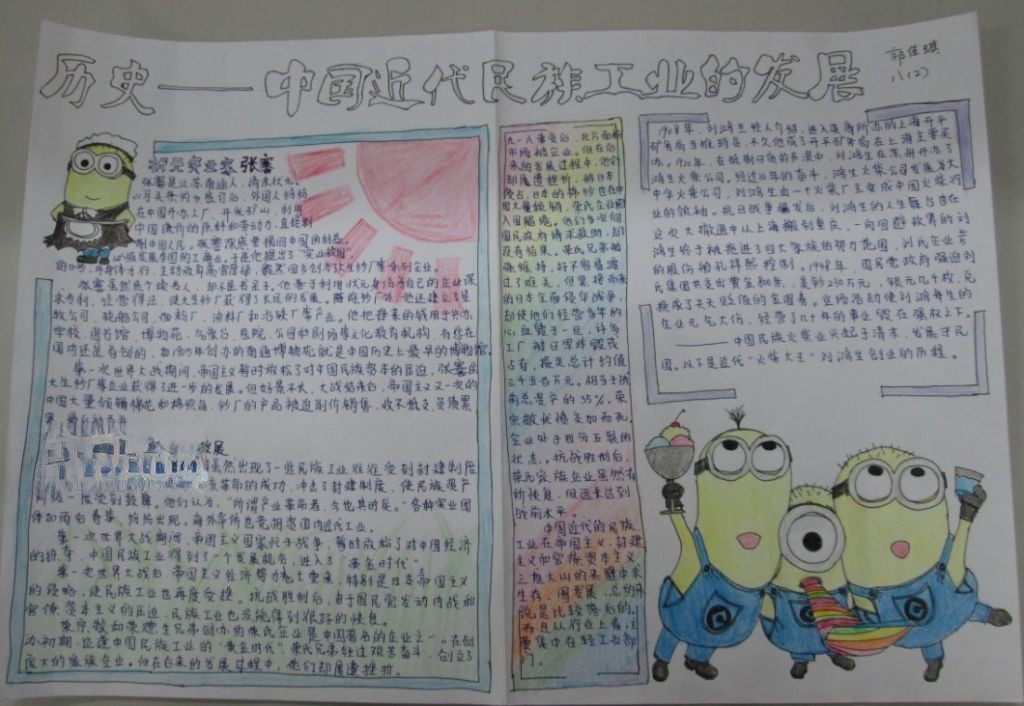 历史——中国近代民族工业的发展
郭佳琪
八(2)
状元实业家 张謇
张謇是江苏南通人，清末状元。
《马关条约》签订后，外国人纷纷
在中国开办工厂，开采矿山，利用
中国廉价的原料和劳动力，直接剥
削中国人民。张謇深感要挽回中国的利益，
必须发展本国的工商业。于是他提出了"实业救国"
的口号，
张謇虽然是个读书人，却不是书呆子。他善于利用状元身份为自己的企业谋
求专利，经营得法，使大生纱厂获得了长足的发展。除纱厂外，他还建立了垦
牧公司、轮船公司、面粉厂、油料厂和冶铁厂等产业。他把挣来的钱用于兴办
学校、图书馆、博物苑、气象台、医院、公园和剧场等文化教育机构，有些在
国内还是首创的，如1905年创办的南通博物苑就是中国历史上最早的博物馆。
第一次世界大战期间，帝国主义暂时放松了对中国民族资本的压迫，张謇的
大生纱厂等企业获得了进一步的发展。但好景不长，大战结束后，帝国主义又一次向
中国大量倾销棉花和棉织品，纱厂的产品被迫削价销售，收不抵支，负债累
累，最后被吞并
发展
虽然出现了一些民族工业往往受到封建制度
革命的成功，冲击了封建制度，使民族资产
阶级一度受到鼓舞。他们认为，"所谓产业革命者，今也其时矣。"各种实业团
体如雨后春笋，纷纷出现，海外华侨也竞相投资国内近代工业。
第一次世界大战期间，帝国主义国家忙于战争，暂时放松了对中国经济
的掠夺，中国民族工业得到了一个发展机会，进入了"黄金时代"。
第一次世界大战后，帝国主义经济势力卷土重来，特别是日本帝国主义
的侵略，使民族工业也再度受挫。抗战胜利后，由于国民党发动内战和
官僚资本主义的压迫，民族工业也没能得到很好的恢复。
荣宗敬和荣德生兄弟创办的荣氏企业是中国著名的企业之一。在创
办初期，正逢中国民族工业的"黄金时代"，荣氏兄弟经过艰苦奋斗，创立了
庞大的家族企业。但在后来的发展过程中，他们却屡遭挫折。
九一八事变后，北方面粉
市场被
来的发展过程中，他们
却屡遭挫折。被日本
侵占，日本的棉纱也在中
国大量倾销，荣氏企业陷
入困境。他们多次向
国民政府请求救助，却
没有结果。荣氏兄弟勉
强维持，好不容易渡
过了难关，但紧接而来
的日本全面侵华战争，
却使他们经营多年的
心血毁于一旦，许多
工厂被日军炸毁或
占有，损失总计约值
三千五百万元，相当于战
前总资产的35%。荣
宗敬忧愤交加而死，
企业处于四分五裂的
状态。抗战胜利后，
荣氏家族企业虽然有
所恢复，但远未达到
战前水平。
中国近代的民族
工业在帝国主义、封建
主义和官僚资本主义
三座大山的夹缝中求
生存、图发展，总的来
说是比较落后的。
而且从行业上看，主
要集中在轻工业部
门。
1908年，刘鸿生经人介绍，进入英商所办的上海开平
矿务局当推销员，不久他成了开平矿务局在上海主要买
办。1920年，在抵制日货的声浪中，刘鸿生在苏州开办了
鸿生火柴公司。经过10年的奋斗，鸿生火柴公司发展为大
中华火柴公司，刘鸿生由一个火柴厂主变成中国火柴行
业的领袖。抗日战争爆发后，刘鸿生的人生舞台也在
这次大撤退中从上海搬到重庆，一向回避政界的刘
鸿生终于被拖进了四大家族的势力范围，刘氏企业
的股份被孔祥熙控制。1948年，国民党政府强迫刘
氏集团共交出黄金800条、美钞230万元、银元几千枚，兑
换成了天天贬值的金圆券。这场活动使刘鸿生的
企业元气大伤，经营了几十年的事业毁在强权之下。
——中国民族火柴业兴起于清末，发展于民
国。以下是近代"火柴大王"刘鸿生创业的历程。